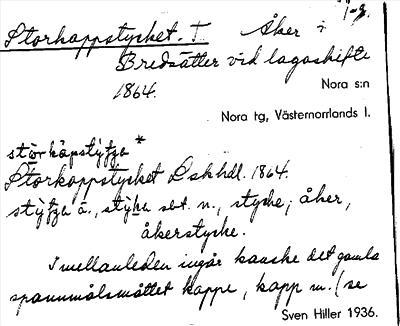 Storkappstycket. T. Åker i
Bredsätter vid lagaskifte
1864.
Nora s:n
Nora tg, Västernorrlands l.
Storkappstycket Lskhdl. 1864.
n., stycke, åker,
åkerstycke.
I mellanleden ingår kanske det gamla
spannmålsmåttet kappe, kapp m. (se
Sven Hiller 1936.